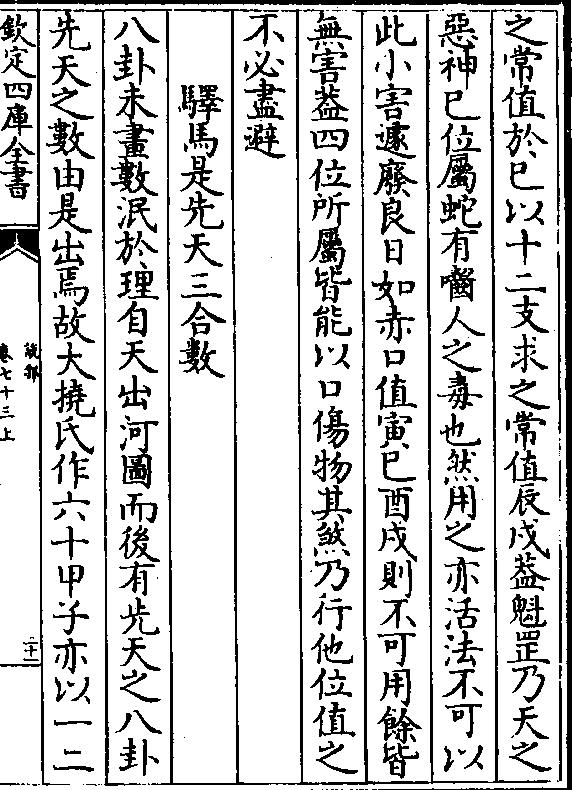 之常值於巳以十二支求之常值辰戌葢魁罡乃天之
惡神巳位屬蛇有嚙人之毒也然用之亦活法不可以
此小害遽廢良日如赤口值寅巳酉戌則不可用餘皆
無害葢四位所屬皆能以口傷物其煞乃行他位值之
不必盡避
驛馬是先天三合數
八卦未畫數泯於理自天出河圖而後有先天之八卦
先天之數由是出焉故大撓氏作六十甲子亦以一二
欽定四庫全書
說郛
卷七十三上
二十